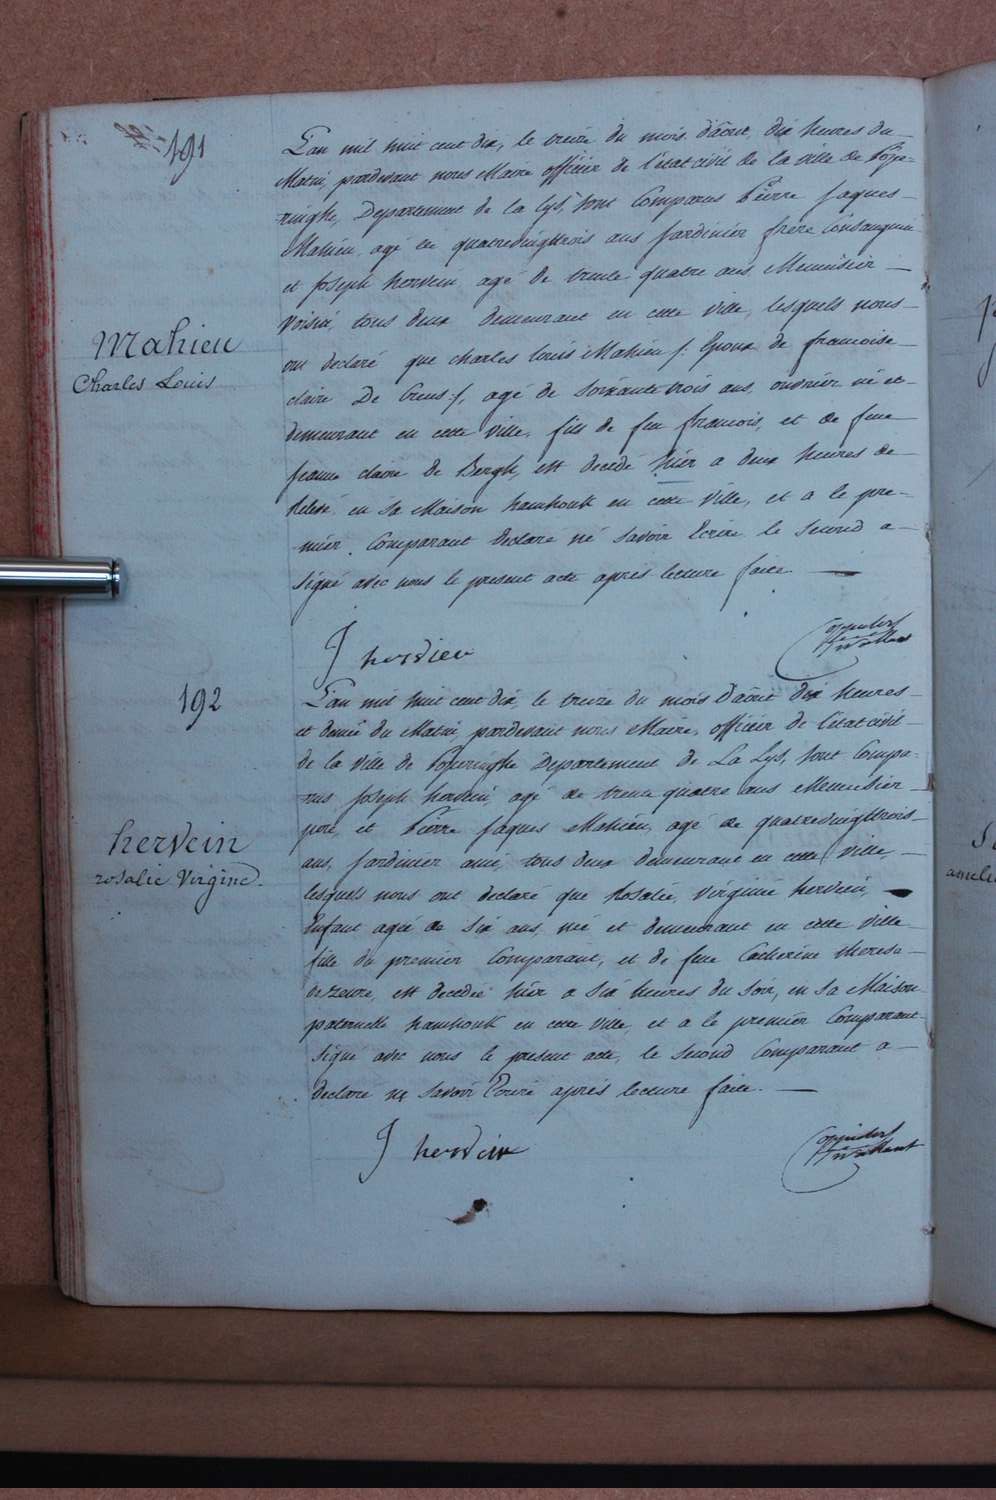 191
L'an mil huit cent dix, le treize du mois d'août, dix heures du
Matin, pardevant nous Maire officier de l'état civil de la ville de Pope-
ringhe, Departement de la Lys, sont Comparus Pierre Jaques
Mahieu, agé de quatrevingttrois ans Jardinier frère Consanguin
et Joseph hervein, agé de trente quatre ans Menuisier
Mahieu
Charles Louis
Voisin, tous deux demeurant en cette ville, lesquels nous
ont declaré que charles louis Mahieu /: Epoux de francoise
claire De Creus :/, agé de soixante trois ans, ouvrier né et
demeurant en cette ville, fils de feu francois, et de feue
jeanne claire de Bergh, est decedé hier a deux heures de
relevé, en sa Maison hamhouk en cette Ville, et a le pre-
mier Comparant declaré né savoir Ecrire le second a
signé avec nous le present acte après lecture faite.
J hervien
192
L'an mil huit cent dix, le treize du mois d'août dix heures
et demie du Matin, pardevant nous Maire, officier de l'état civil
de la Ville de Poperinghe Departement de La Lys, sont Compa-
rus Joseph hervein, agé de trente quatre ans Menuisier
hervein
rosalie Virginie
pere, et Pierre Jaques Mahieu, agé de quatrevingttrois
ans, Jardinier ami, tous deux demeurant en cette Ville,
lesquels nous ont declaré que Rosalie, virginie hervein,
Enfant agée de six ans, née et demeurant en cette ville
fille du premier Comparant, et de feue Catherine therese
dezeure, est decedée hier a six heures du soir, en sa Maison
paternelle hamhouk en cette ville, et a le premier Comparant
signé avec nous le present acte, le second Comparant a
declaré ne savoir Ecrire après lecture faite.
J hervein